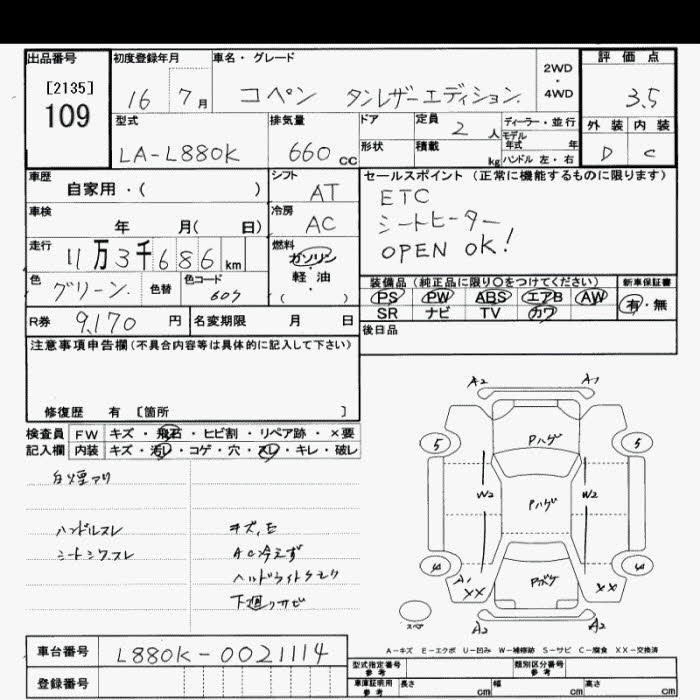 出品番号
[2135]
109
初度登録年月
16 7 月
車名・グレード
コペン タンレザーエディション.
2WD
・
4WD
評価点
3.5
外装 内装
D C
型式
LA-L880K
排気量
660 cc
ドア
形状
定員 2 人
積載 kg
ディーラー・並行
モデル
年式 年
ハンドル 左・右
車歴
自家用・( )
シフト
AT
車検
年 月( 日)
冷房
AC
走行
11万3千686 km
燃料
ガソリン
・
軽・油
( )
色
グリーン.
色替
色コード
607
R券 9,170 円
名変期限 月 日
セールスポイント(正常に機能するものに限ります)
ETC
シートヒーター
OPEN OK!
装備品(純正品に限り○をつけてください)
PS PW ABS エアB AW
SR ナビ TV カワ
新車保証書
有・無
後日品
注意事項申告欄(不具合内容等は具体的に記入して下さい)
修復歴 有 [箇所 ]
検査員
記入欄
FW キズ・飛石・ヒビ割・リペア跡・×要
内装 キズ・汚レ・コゲ・穴・スレ・キレ・破レ
白煙アリ
ハンドルスレ
シートシワスレ
キズ,E
AC冷えず
ヘッドライトクモリ
下廻りサビ
A2 A1
5 Pハゲ 5
W2 Pハゲ W2
4 Pボケ 4
A1 XX XX
スペア
A2 A2
A-キズ E-エクボ U-凹み W-補修跡 S-サビ C-腐食 XX-交換済
車台番号 L880K-0021114
登録番号
型式指定番号
参考
類別区分番号
参考
車庫証明用
参考
長さ cm 幅 cm 高さ cm